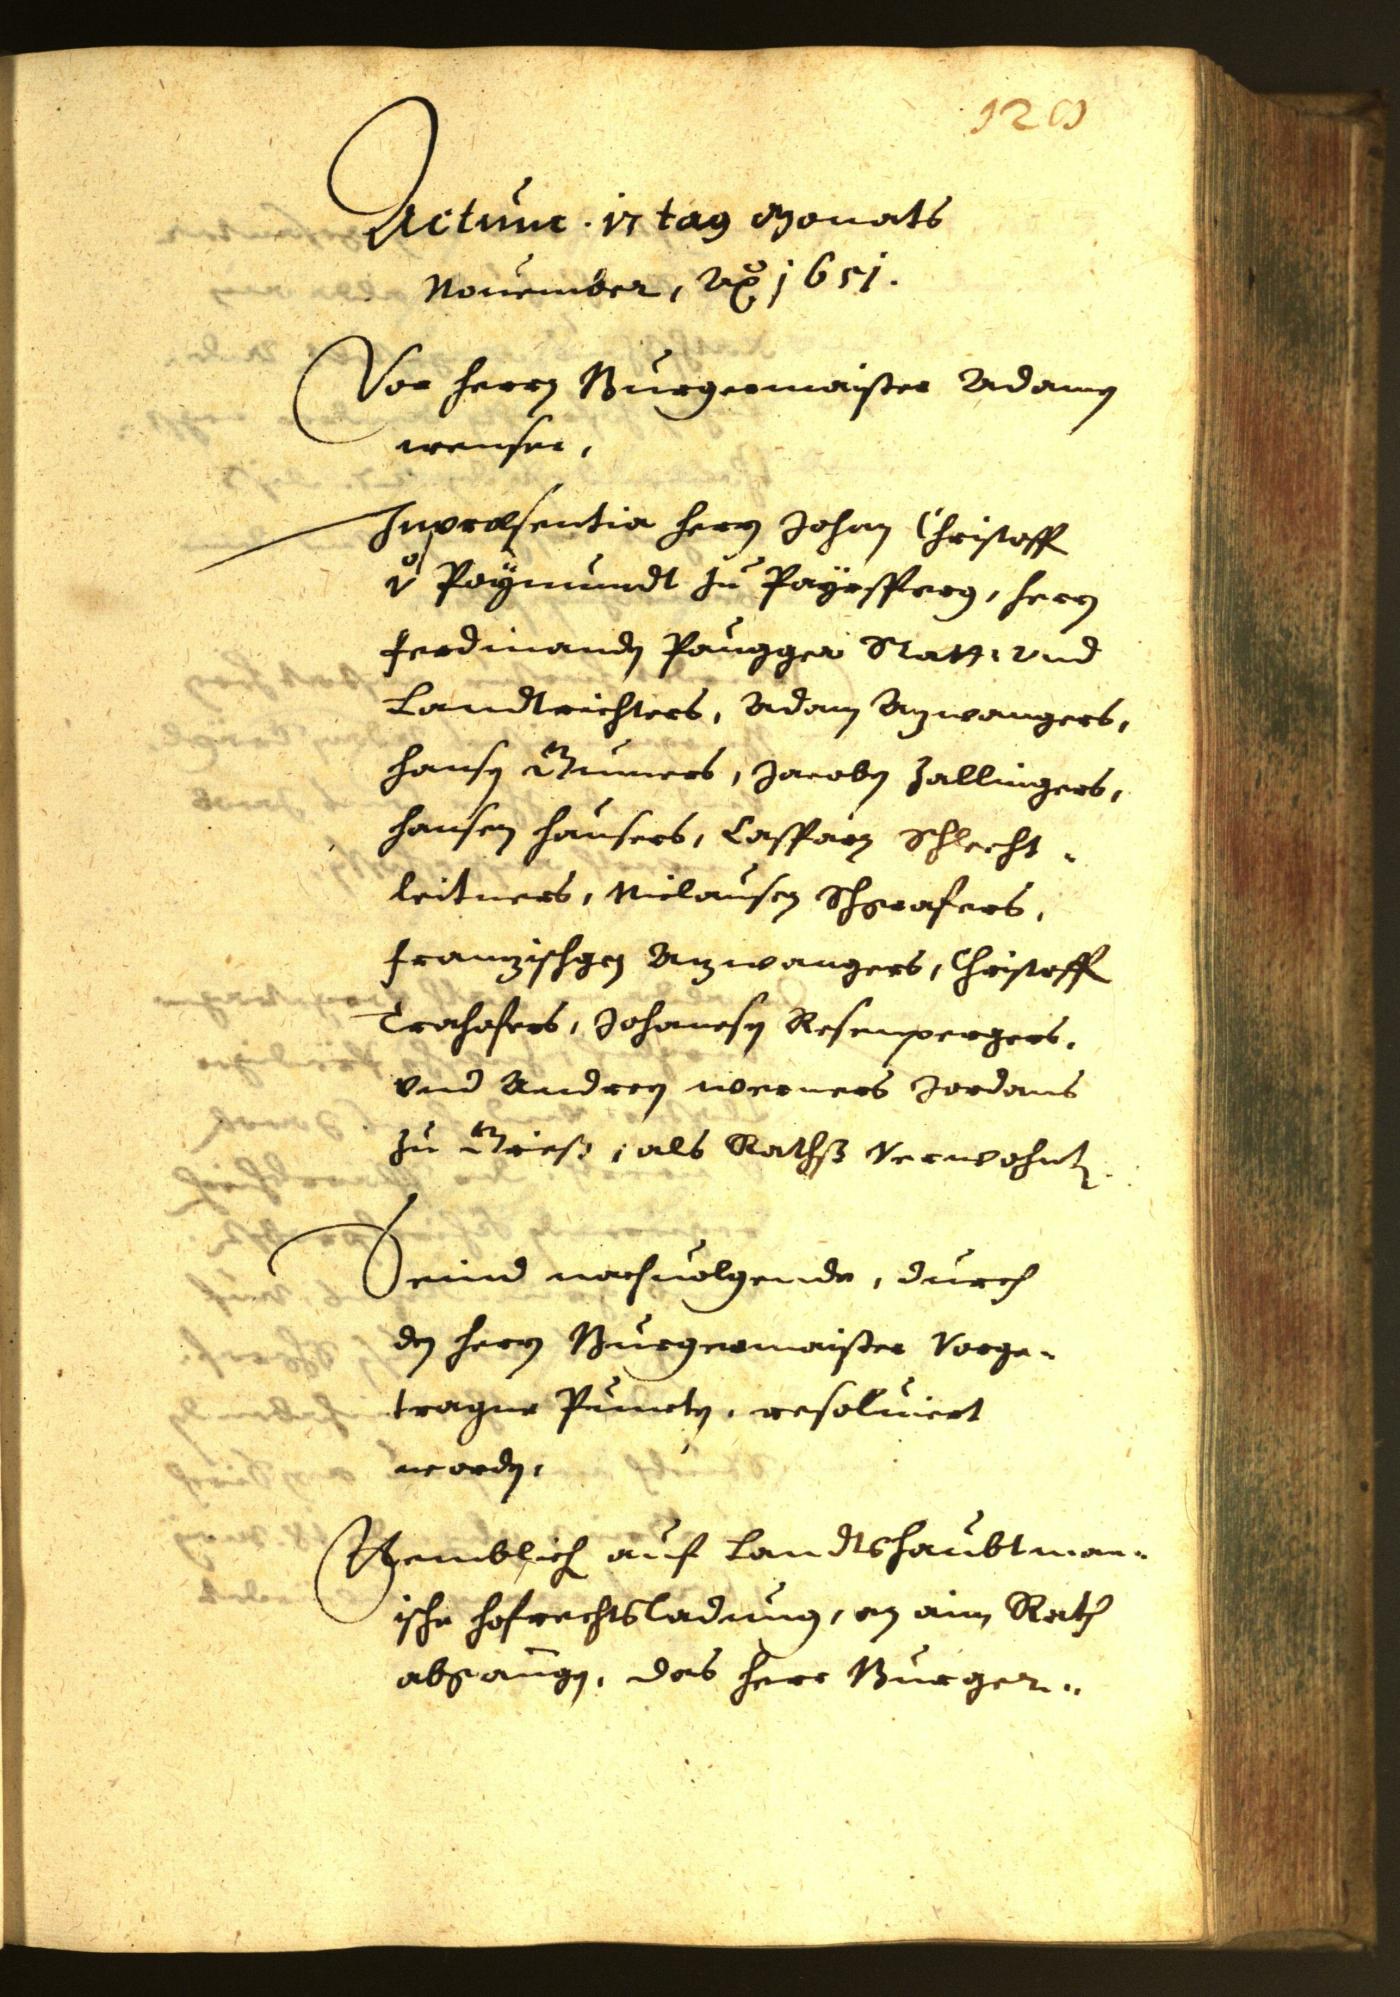 129
Actum 17 tag Monats
November, Ao 1651.
Vor herrn Burgermaister Adamen
wenser,
In præsentia herrn Johan Christoff
vo Poÿmundt zu Paÿrsperg, herrn
Ferdinanden Paugger Statt- vnd
Landtrichters, Adam Azwangers,
hansen Gumers, Jacoben Zallingers,
hansen hausers, Casparn Schlecht-
leitners, Niclausen Schgrafers,
Franzischgen Azwangers, Christoff
Trahofers, Johanesen Resenpergers,
vnd Andreen werners Jordans
zu Grieß, als Raths Verwohnt
Seind nachuolgende, durch
den herrn Burgermaister Vorge-
tragne Puncten, resoluiert
worden,
Nemblich auf Landtshaubtman-
ische hofrechtsladung, an ainen Rath
abgangen, das herr Burger-